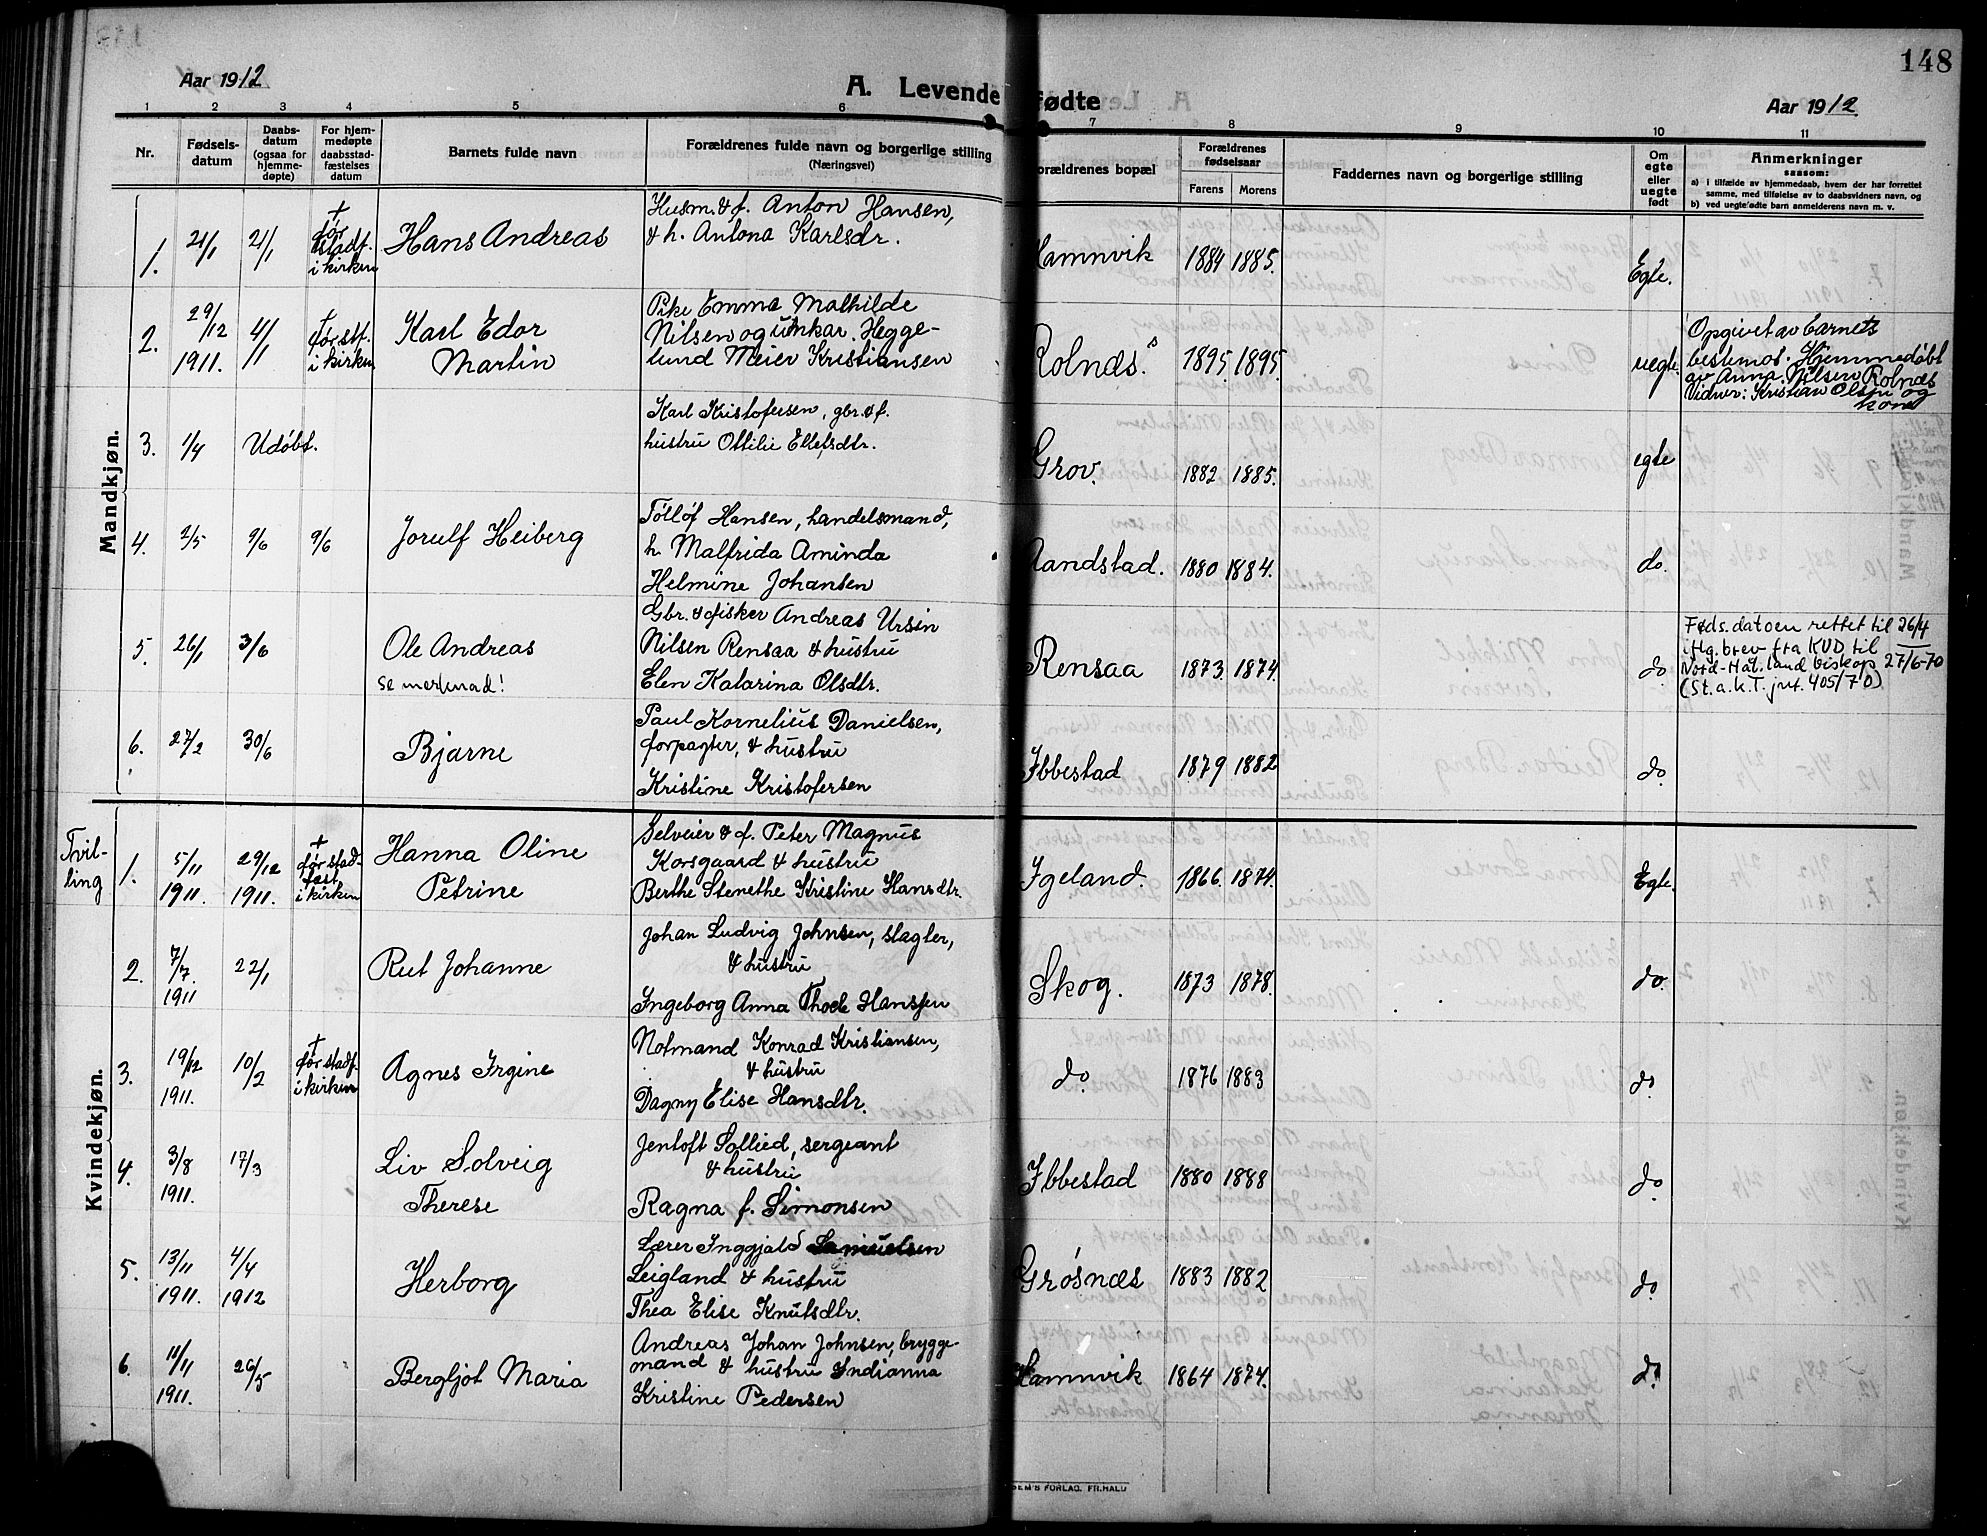 148
Aar 1912
A. Levende fødte
Aar 1912.
1 2 3 4 5 6 7 8 9 10 11
Nr.
Fødsels-
datum
Daabs-
datum
(ogsaa for
hjemme-
døpte)
For hjem-
medøpte
daabsstad-
fæstelses
datum
Barnets fulde navn
Forældrenes fulde navn og borgerlige stilling
(Næringsvei)
orældrenes bopæl
Forældrenes
fødselsaar
Farens Morens
Faddernes navn og borgerlige stilling
Om
egte
eller
uegte
født
Anmerkninger
saasom:
a) i tilfælde av hjemmedaab, hvem der har forrettet
samme, med tilføielse av to daabsvidners navn, og
b) ved uegtefødte barn anmelderens navn m. v.
Mandkjøn.
1. 21/1 21/1
+
før
stadf.
i kirken
Hans Andreas
Husm. & f. Anton Hansen,
& h. Antona Karlsdr.
Hamnvik 1884 1885. Egte.
2. 29/12 1911. 4/1
+
før stf.
i kirken
Karl Edor
Martin
Pike Emma Mathilde
Nilsen og unkar. Hegge-
lund Meier Kristiansen
Rolnæs. 1895. 1895. uegte.
Opgivet av barnets
bestemor. Hjemmedøbt
av Anna Nilsen Rolnæs
Vidner: Kristian Olsen og
kone
3. 1/4 Udøbt.
Karl Kristofersen, gbr. & f.
hustru Ottilie Ellefsdtr.
Grov. 1882 1885. egte
4. 2/5 9/6 9/6
Jorulf Heiberg
Tölløf Hansen, handelsmand,
h. Malfrida Aminda
Helmine Johansen
Aandstad. 1880 1884. do.
5. 26/1 3/6
Ole Andreas
se merknad!
Gbr. & fisker Andreas Ursin
Nilsen Rensaa & hustru
Elen Katarina Olsdtr.
Rensaa 1873. 1874. do
Føds.datoen rettet til 26/4
iflg. brev fra KUD til
Nord-Hål.land biskop 27/6-70
(St.a.k.T. jnr. 405/70)
6. 27/2 30/6
Bjarne
Paul Kornelius Danielsen,
forpagter, & hustru
Kristine Kristofersen
Ibbestad 1879 1882 do
Kvindekjøn.
Tvil-
ling
1. 5/11 1911. 29/12 1911.
+
før stad-
fæst.
i kirken
Hanna Oline
Petrine
Selveier & f. Peter Magnus
Korsgaard & hustru
Berthe Stenethe Kristine Hansdtr.
Igeland. 1866. 1874. Egte.
2. 7/7. 1911 22/1
Rut Johanne
Johan Ludvig Johnsen, slagter,
& hustru
Ingeborg Anna Thode Hanssen
Skog. 1873 1878. do.
3. 19/12 1911. 10/2
+
før stadf.
i kirken
Agnes Irgine
Notmand Konrad Kristiansen,
& hustru
Dagny Elise Hansdtr.
do. 1876 1883 do
4. 3/8 1911. 17/3
Liv Solveig
Therese
Jentoft Sollied, sergeant
& hustru
Ragna f. Simonsen
Ibbestad 1880 1888 do
5. 13/11 1911. 4/4 1912
Herborg
Lærer Inggjald Samuelsen
Leigland & hustru
Thea Elise Knutsdtr.
Grøsnæs 1883 1882 do
6. 11/11 1911. 26/5
Bergljot Maria
Andreas Johan Johnsen, brygge-
mand & hustru Indianna
Kristine Pedersen
Hamnvik 1864 1874. do.
SEM'S FORLAG, FR.HALD